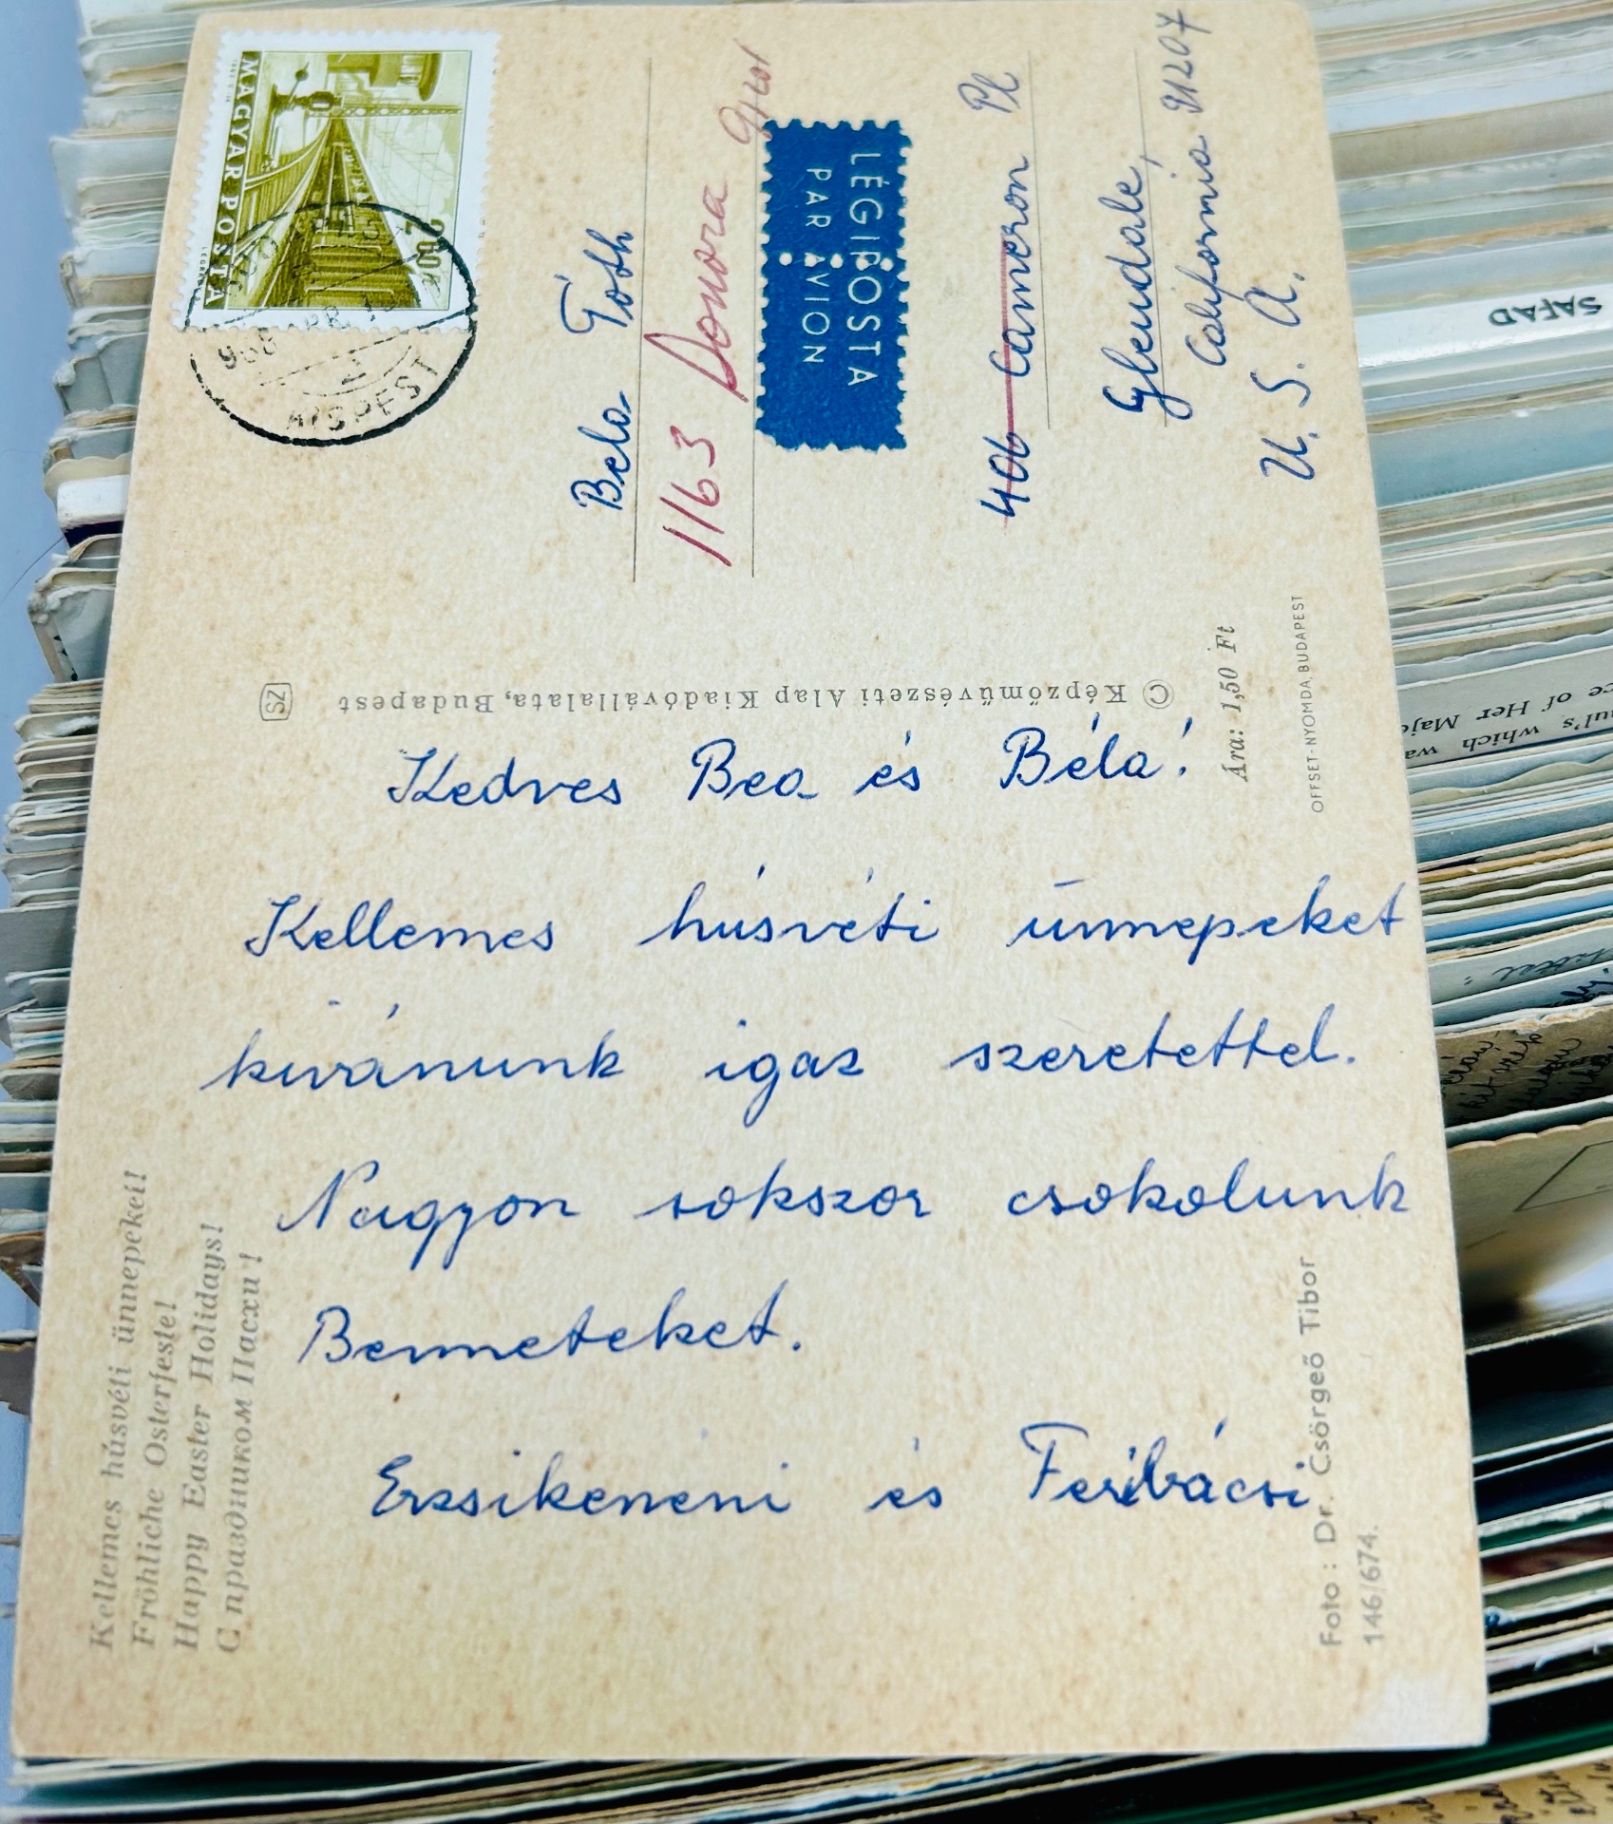 MAGYAR POSTA
2.60 Ft
Bela Tóth
1163 Donora
LÉGIPOSTA
PAR AVION
406 Cameron Pl
Glendale,
California 91207
U. S. A.
© Képzőművészeti Alap Kiadóvállalata, Budapest
SZ
Ára: 1,50 Ft
OFFSET-NYOMDA, BUDAPEST
Kedves Bea és Béla!
Kellemes húsvéti ünnepeket
kívánunk igaz szeretettel.
Nagyon sokszor csokolunk
Benneteket.
Erzsikeneni és Feribácsi
Kellemes húsvéti ünnepeket!
Fröhliche Osterfeste!
Happy Easter Holidays!
С праздником Пасхи!
Foto: Dr. Csörgeő Tibor
146/674.
SAFAD